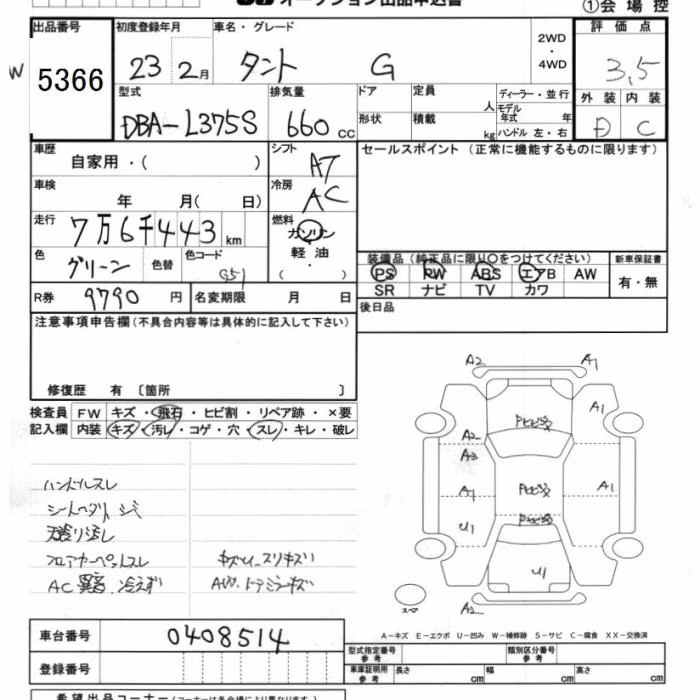 オークション出品申込書
①会場控
W
出品番号
5366
初度登録年月
23 2月
車名・グレード
タント G
2WD
・
4WD
評価点
3.5
外装 内装
D C
型式
DBA-L375S
排気量
660 cc
ドア
形状
定員 人
積載 kg
ディーラー・並行
モデル年式 年
ハンドル 左・右
車歴
自家用・( )
シフト
AT
セールスポイント(正常に機能するものに限ります)
車検
年 月( 日)
冷房
AC
走行
7万6千443km
燃料
ガソリン
軽油
・
( )
色
グリーン
色替
色コード
G51
装備品(純正品に限り○をつけてください)
PS PW ABS エアB AW
SR ナビ TV カワ
新車保証書
有・無
R券 9790 円
名変期限 月 日
後日品
注意事項申告欄(不具合内容等は具体的に記入して下さい)
修復歴 有〔箇所 〕
検査員記入欄
FW キズ・飛石・ヒビ割・リペア跡・×要
内装 キズ・汚レ・コゲ・穴・スレ・キレ・破レ
ハンドルスレ
フロアカーペットスレ
AC 異音、冷えず
A2 A1
A1
A2
A2
A1 A1
U1
U1
A2
スペア
A-キズ E-エクボ U-凹み W-補修跡 S-サビ C-腐食 XX-交換済
車台番号
0408514
登録番号
型式指定番号
参考
類別区分番号
参考
車庫証明用
参考
長さ cm
幅 cm
高さ cm
希望出品コーナー